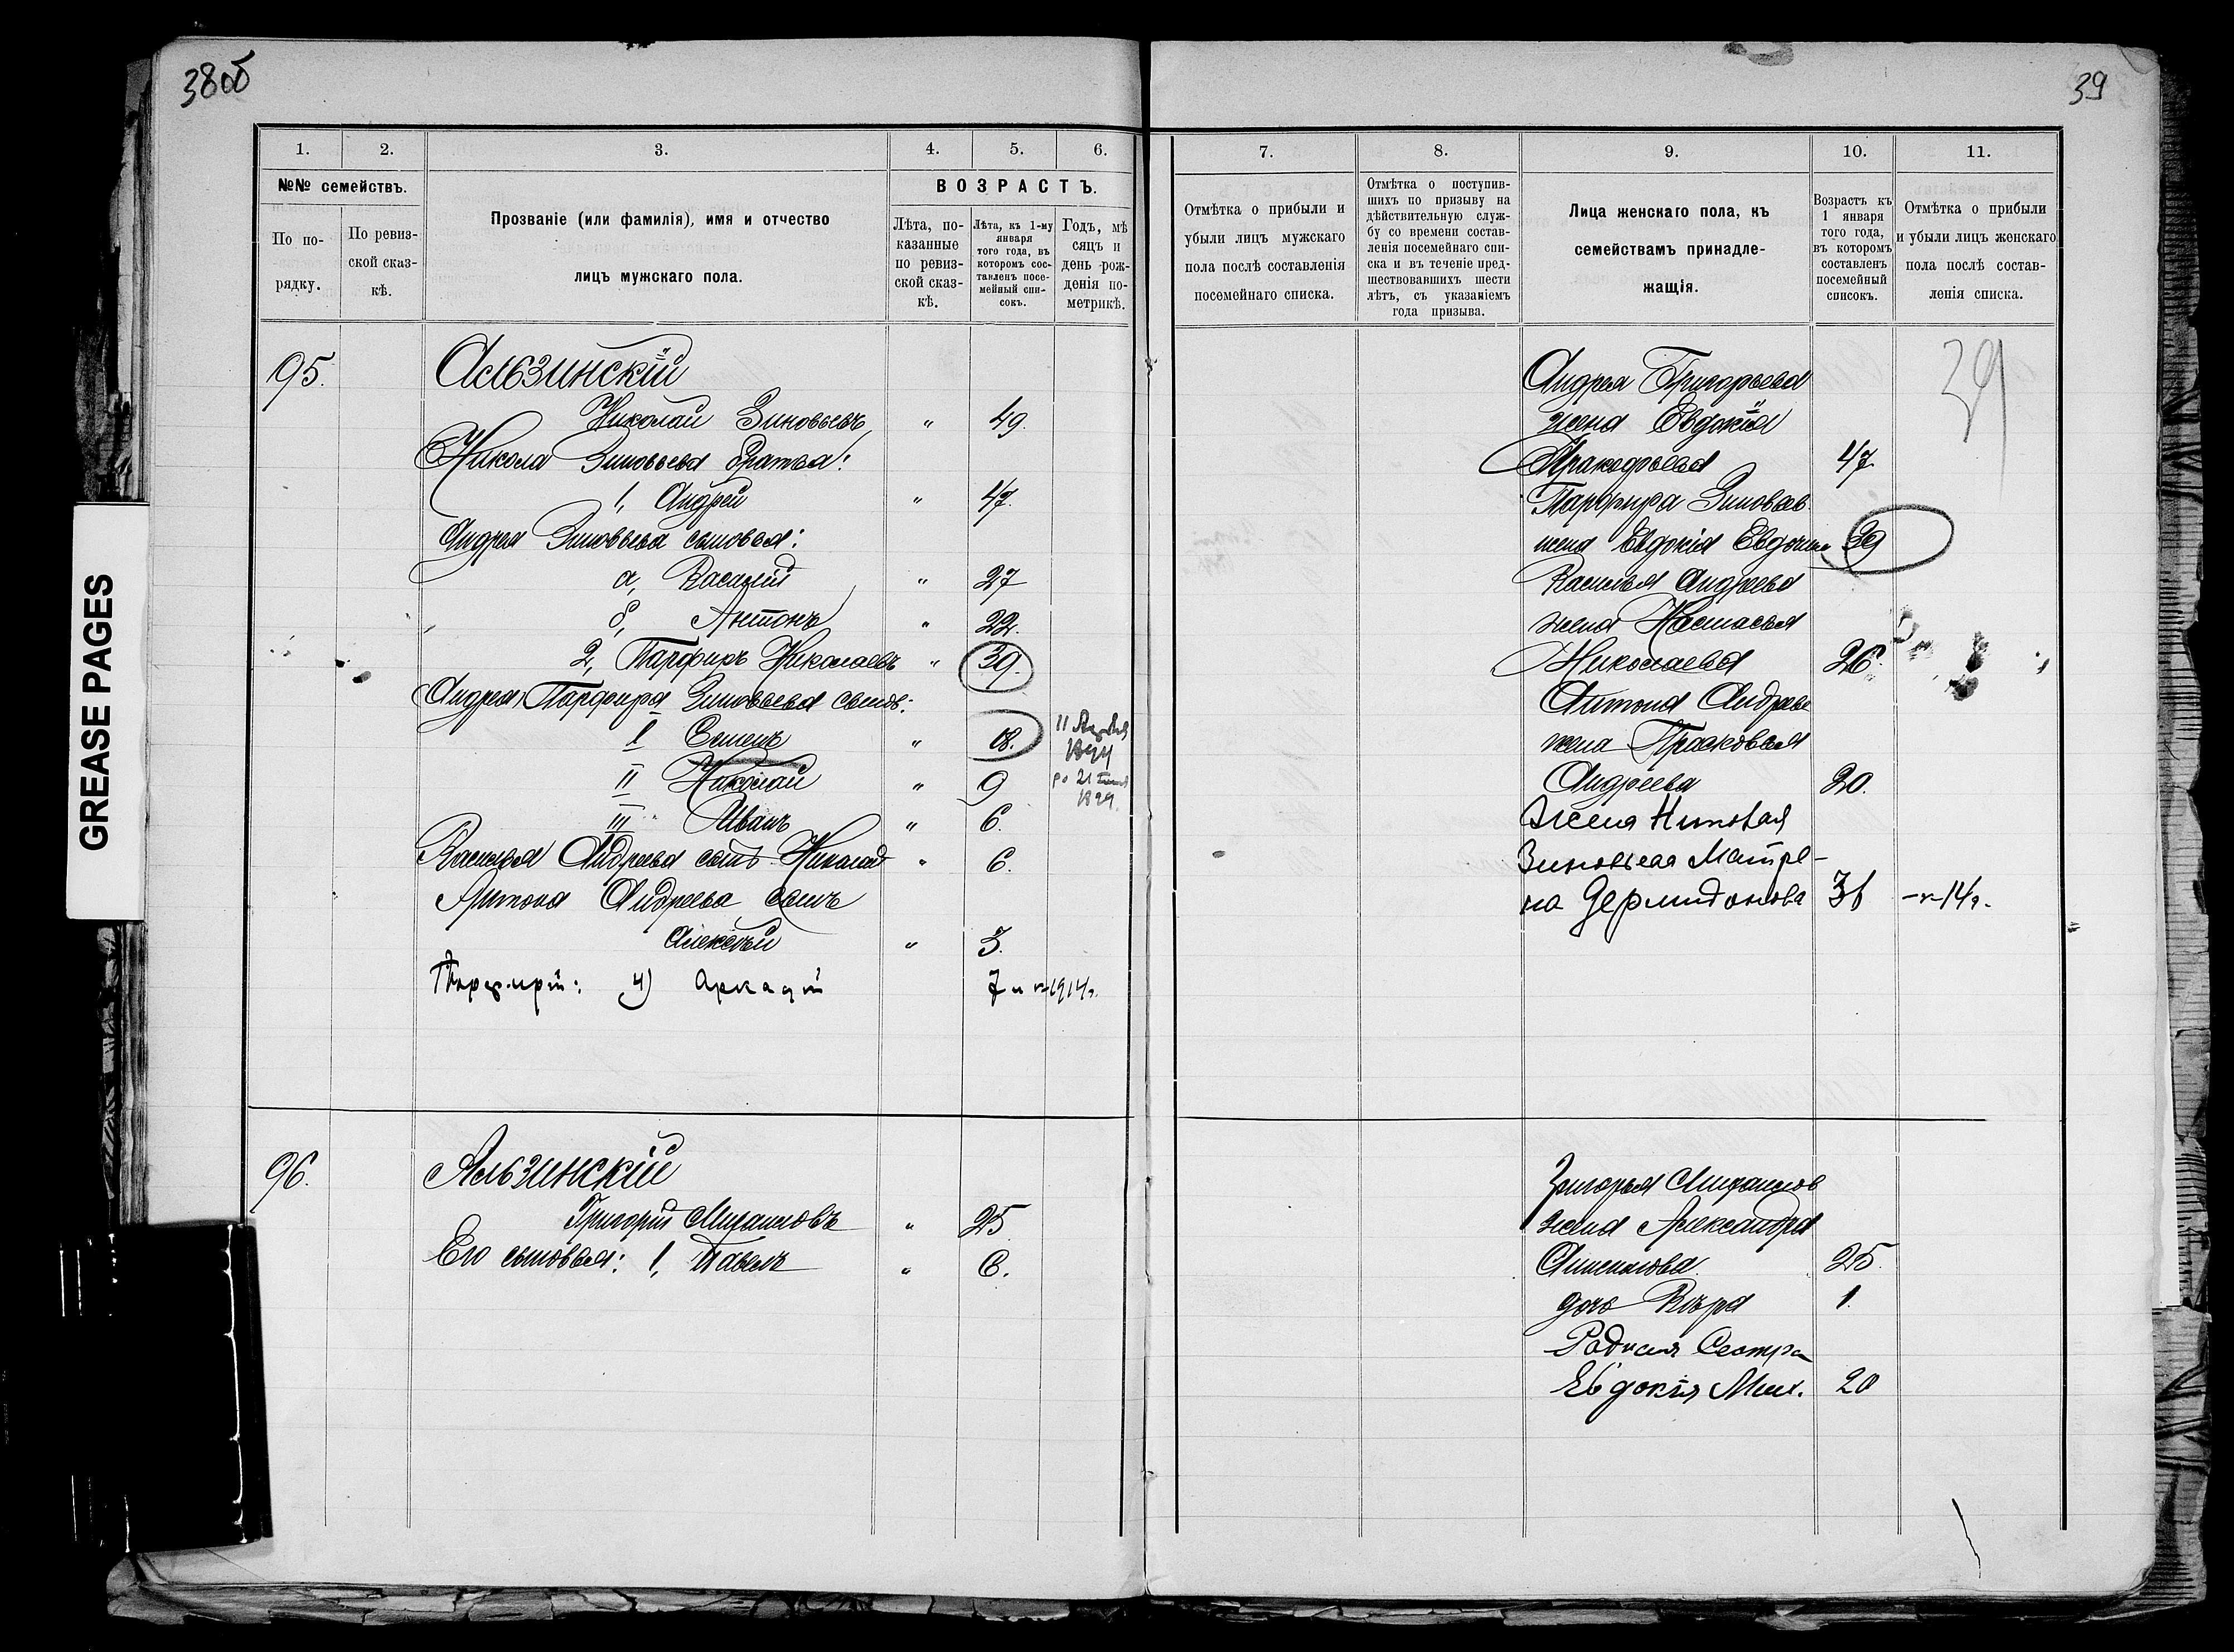 38об
39
GREASE PAGES
1.
2.
3.
4.
5.
6.
№№ семействъ.
По по-
рядку.
По ревиз-
ской сказ-
кѣ.
Прозваніе (или фамилія), имя и отчество
лицъ мужскаго пола.
ВОЗРАСТЪ.
Лѣта, по-
казанные
по ревиз-
ской сказ-
кѣ.
Лѣта, къ 1-му
января
того года, въ
которомъ сос-
тавленъ посе-
мейный спи-
сокъ.
Годъ, мѣ
сяцъ и
день рож-
денія по-
метрикѣ.
95. Альзинскій
Николай Зиновьевъ " 49.
Никола Зиновьева братья:
1, Андрей " 47.
Андрея Зиновьева сыновья:
а, Василій " 27
б, Антонъ " 22.
2, Парфиръ Николаевъ " 39.
Андрея Парфира Зиновьева сынов:
I " 18. 11
II Николай " 9 21
1899
III Иванъ " 6.
Василья Андреева сынъ Николай " 6.
Антона Андреева сынъ
Алексѣй " 3.
4) Аркадій 7 1914г.
96. Альзинскій
Григорій Михаиловъ " 25
Его сыновья: 1, Павелъ " 6.
7.
8.
9.
10.
11.
Отмѣтка о прибыли и
убыли лицъ мужскаго
пола послѣ составленія
посемейнаго списка.
Отмѣтка о поступив-
шихъ по призыву на
дѣйствительную служ-
бу со времени состав-
ленія посемейнаго спи-
ска и въ теченіе пред-
шествовавшихъ шести
лѣтъ, съ указаніемъ
года призыва.
Лица женскаго пола, къ
семействамъ принадле-
жащія.
Возрастъ къ
1 января
того года,
въ которомъ
составленъ
посемейный
списокъ.
Отмѣтка о прибыли
и убыли лицъ женскаго
пола послѣ состав-
ленія списка.
39
Андрея Григорьева
жена Евдокія
47
Парфира Зиновьев.
жена Евдокія 39
Василья Андреева
жена Настасья
Николаева 26.
Антона Андреев
жена Прасковья
Андреева 20.
Жена
Зиновьева Матре-
на Дермидонова 14г.
Григорья Михаилов
жена Александра
25.
дочь Вѣра 1.
Родная Сестра
Евдокія Мих. 20